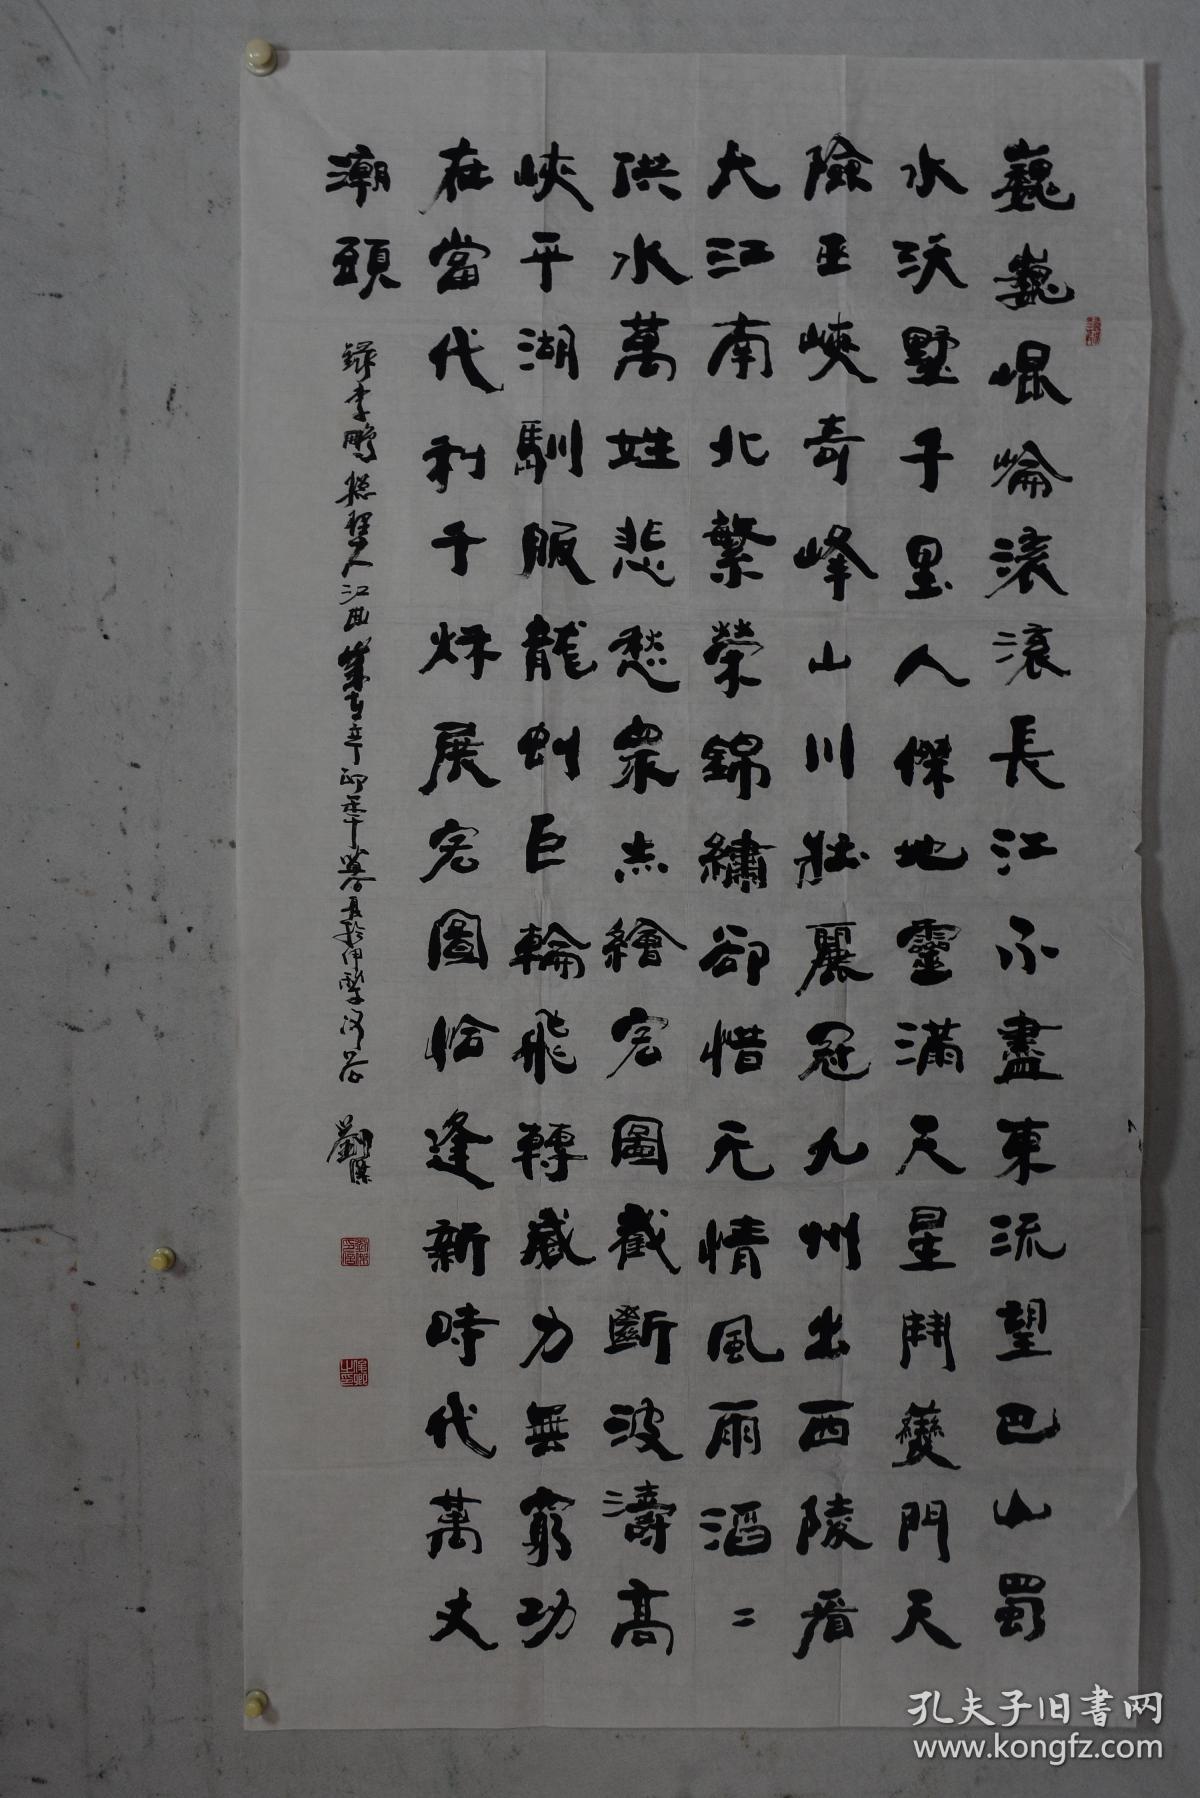 巍巍崐崘滚滚長江不盡東流望巴山蜀
水沃墅千里人傑地靈滿天星鬥夔門天
險巫峽奇峰山川壯麗冠九州出西陵看
大江南北繁榮錦繡卻惜无情風雨滔〻
洪水萬姓悲愁衆志繪宏圖截斷波濤高
峽平湖馴服龍虯巨輪飛轉威力無窮功
在當代利千秌展宏圖恰逢新時代萬丈
潮頭
錄李鵬總理大江曲
劉傑
孔夫子旧书网
www.kongfz.com